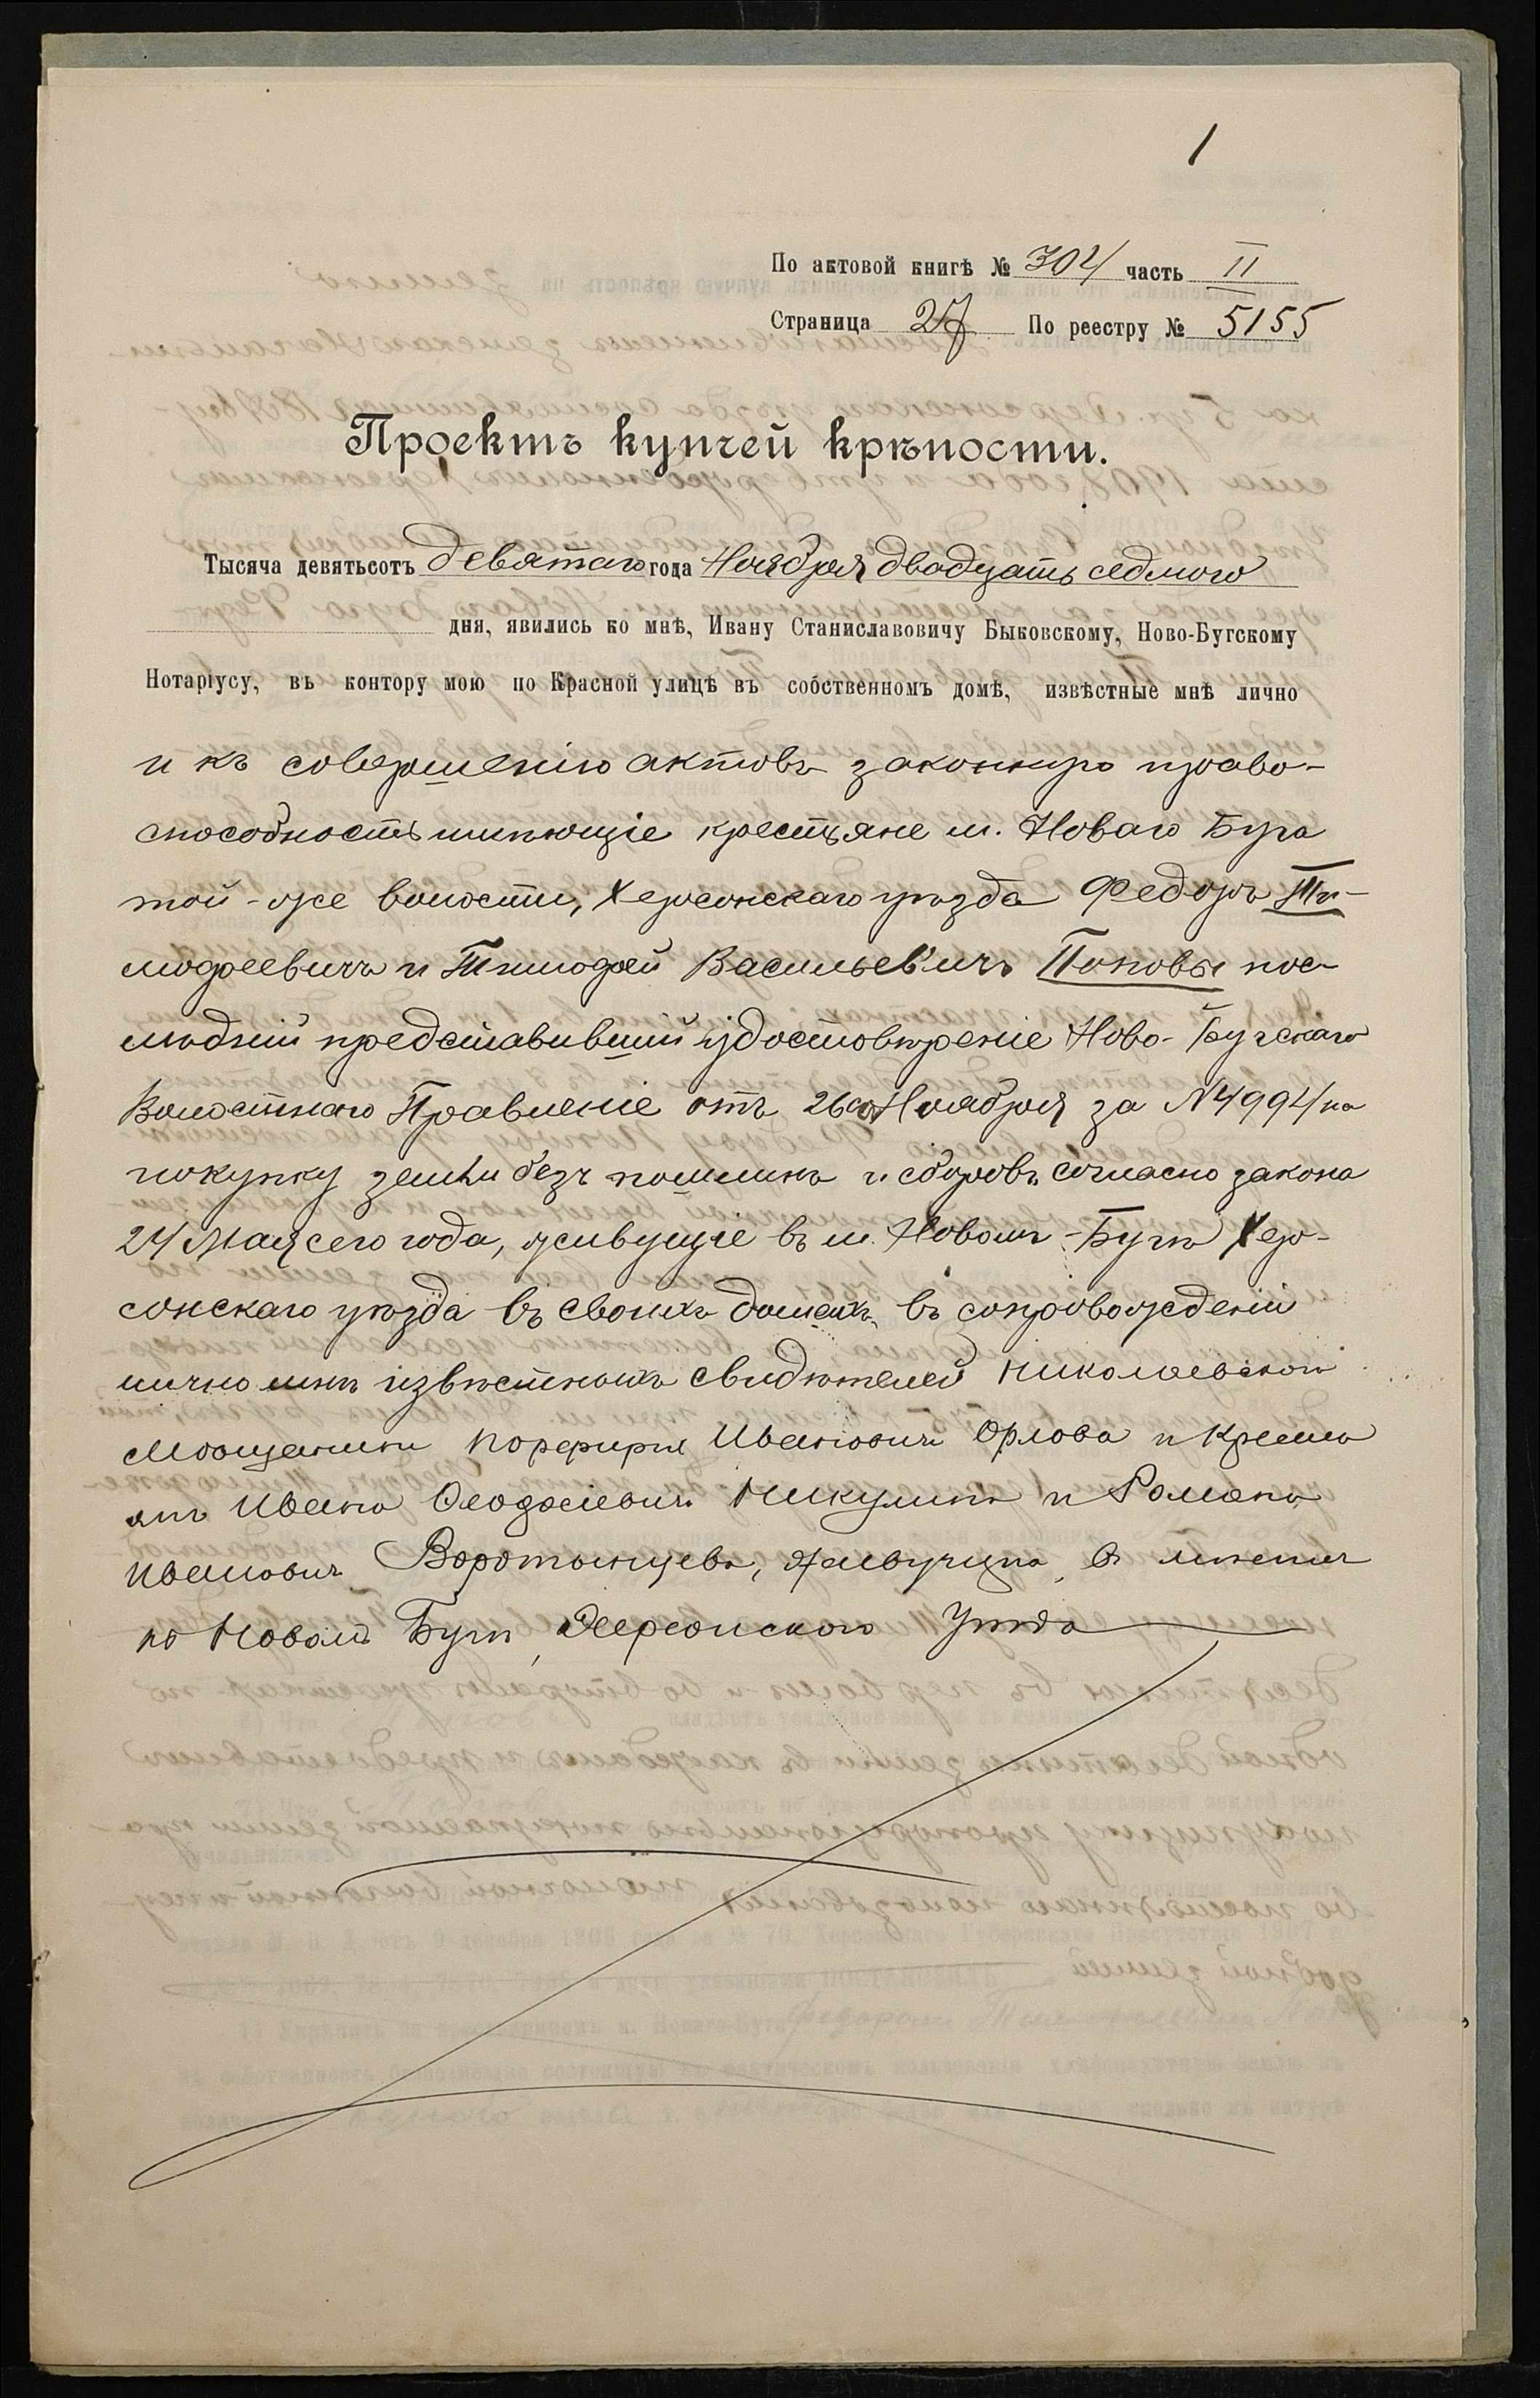 1
По актовой книгѣ № 304 часть II
Страница 27 По реестру № 5155
Проектъ купчей крѣпости.
Тысяча девятьсотъ девятаго года Ноября двадцать седмого
дня, явились ко мнѣ, Ивану Станиславовичу Быковскому, Ново-Бугскому
Нотаріусу, въ контору мою по Красной улицѣ въ собственномъ домѣ, извѣстные мнѣ лично
и къ совершенію актовъ законную право-
способность имѣющіе крестьяне м. Новаго Буга
той-же волости, Херсонскаго уѣзда Федоръ Ти-
мофеевичъ и Тимофей Васильевичъ Поповы пос-
лѣдній представившій удостовѣреніе Ново-Бугскаго
Волостнаго Правленіе отъ 26го Ноября за №4994 на
покупку земли безъ пошлинъ и сборовъ согласно закона
24 Мая сего года, живущіе въ м. Новомъ-Бугѣ Хер-
сонскаго уѣзда въ своихъ домахъ, въ сопровожденіи
лично мнѣ извѣстныхъ свидѣтелей Николаевской
Мѣщанина Порфирія Ивановича Орлова и Крестья
Ивана Феодосіевича Никулина и Романа
Ивановича Воротынцева, живущихъ въ
по Новомъ Бугѣ, Херсонскаго Уѣзда